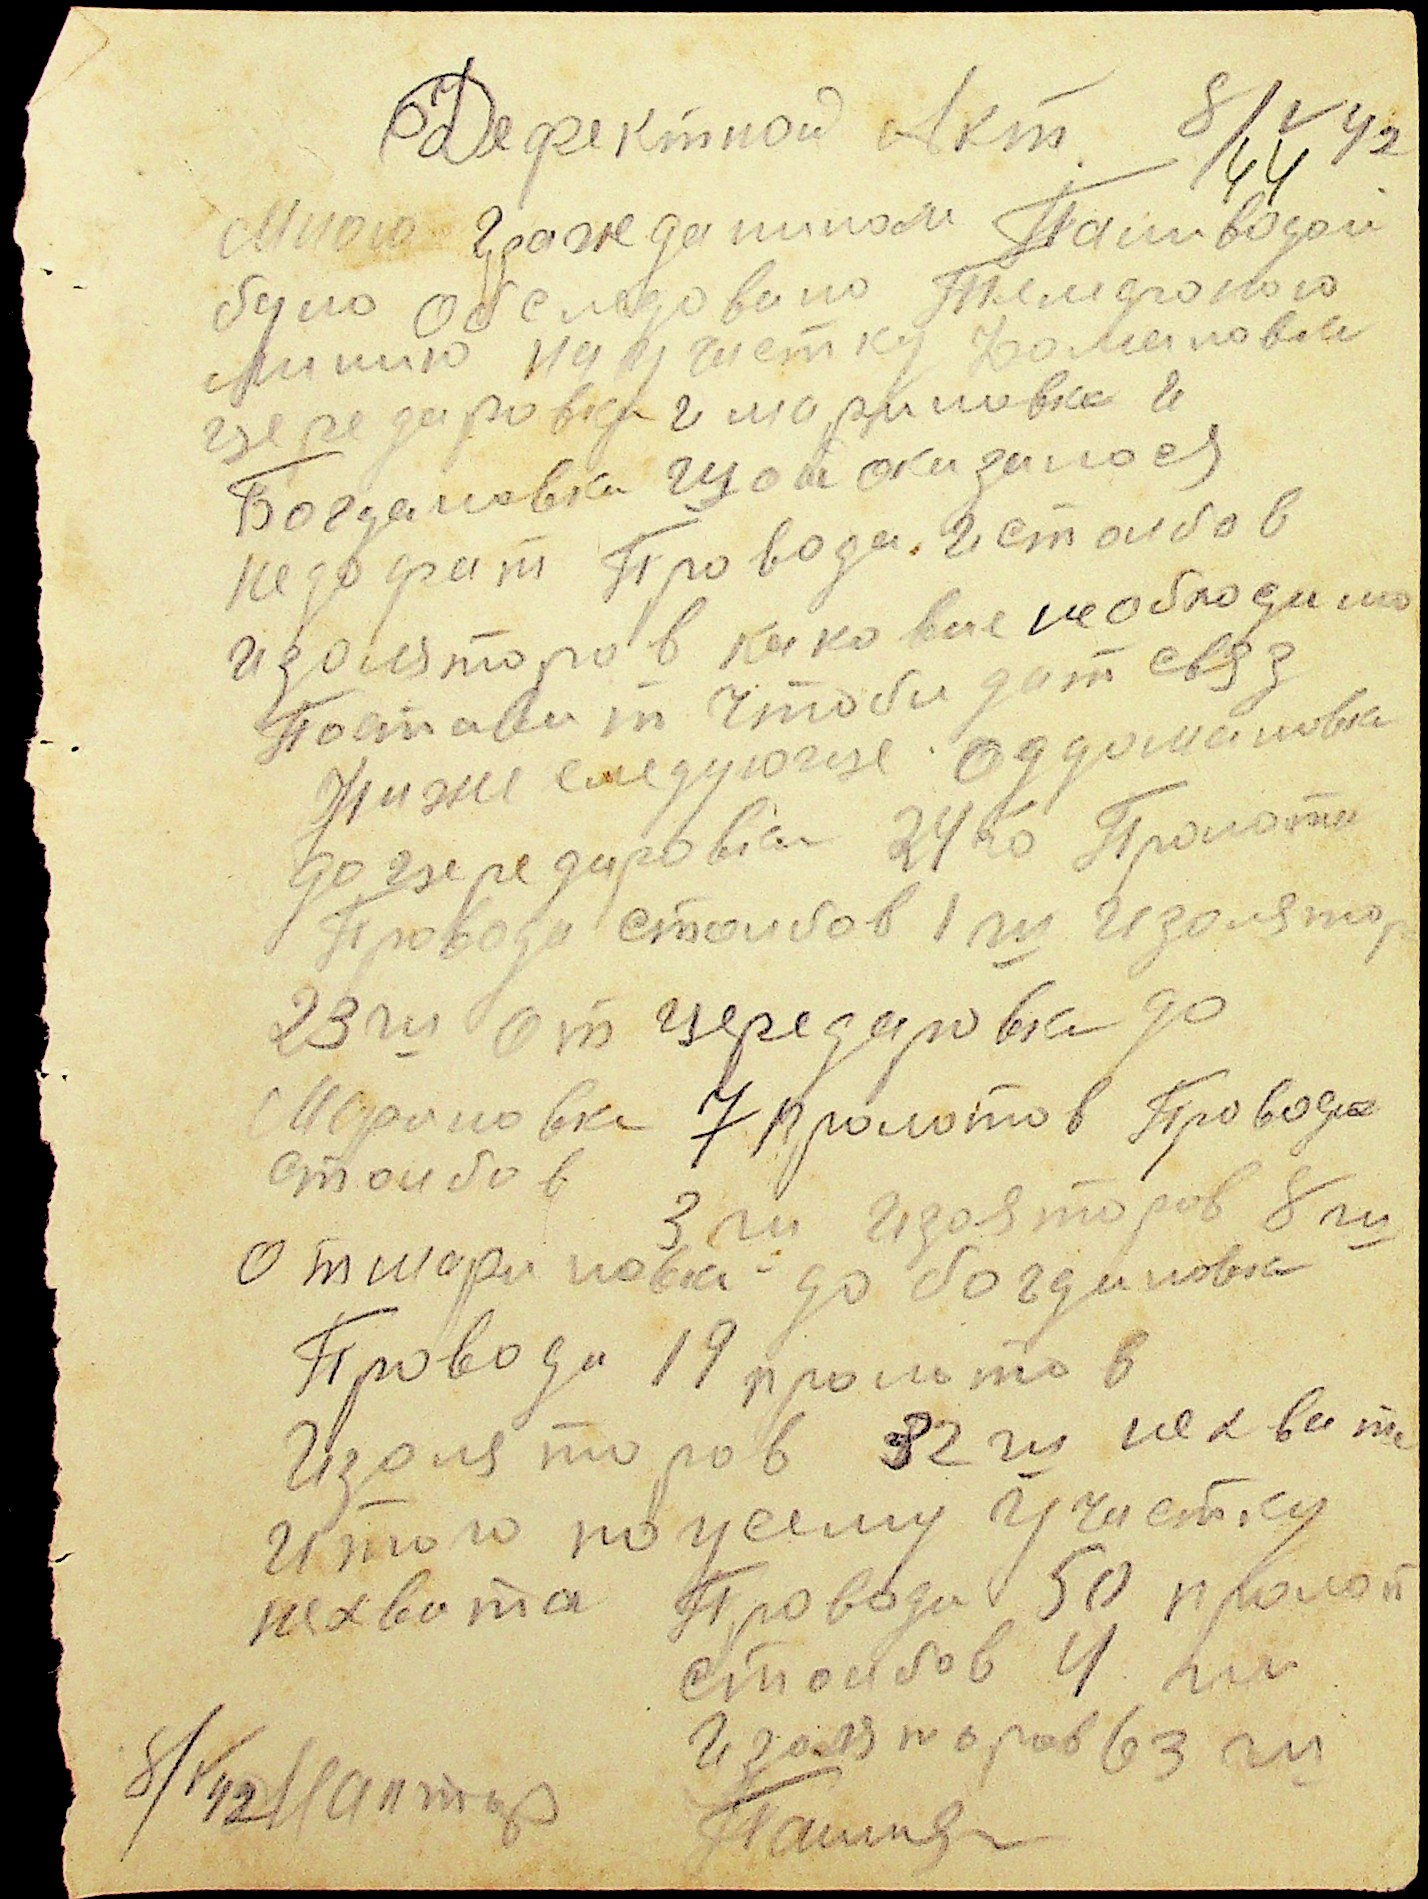 Дефектной Акт. 8/V 42
44
Мною гражданином Паливодой
було обследовано Телефоною
линию на участку Домановка
щередаровка и мариновка и
Богдановка щой оказалося
недофат Провода. и столбов
изоляторов каковые необходимо
Поставит чтоби дат связ
Ниже следующе од домановка
до щередаровки 24 ко Пролота
Провода столбов 1 ш изолятор
23 ш от щередаровка до
Мариновка 7 пролотов Провода
столбов
3 ш изояторов 8 ш
от мариновка до богдановка
Провода 19 пролотов
Изоляторов 32 ш нехвата
Итого по усему Участку
нехвата Провода 50 пролот
столбов 4 ш
изоляторов 63 ш
8/V 42 Монтьор